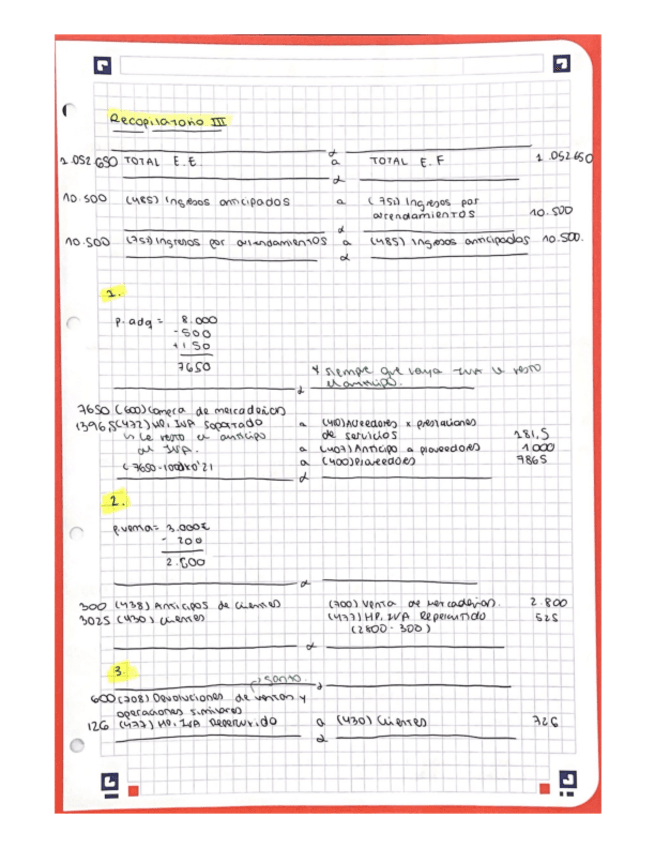 Recopilatorio III
1.052.650 TOTAL E.E. a TOTAL E.F 1.052.650
10.500 (485) Ingresos anticipados a (751) Ingresos por
arrendamientos 10.500
10.500 (751) Ingresos por arrendamientos a (485) Ingresos anticipados 10.500.
1.
P.adq = 8.000
- 500
+ 150
7650
* siempre que vaya IVA le resto
el anticipo.
7650 (600) Compra de mercaderías
1396,5 (472) HP. IVA Soportado a (410) Acreedores x prestaciones
↳ le resto el anticipo de servicios 181,5
al IVA. a (407) Anticipo a proveedores 1000
(7650-1000)x0'21 a (400) Proveedores 7865
2.
P.venta = 3.000€
- 200
2.800
300 (438) Anticipos de clientes (700) Venta de mercaderías. 2.800
3025 (430) clientes (477) HP. IVA Repercutido 525
(2800 - 300)
3.
600 (708) Devoluciones de ventas y
operaciones similares
126 (477) HP. IVA Repercutido a (430) Clientes 726